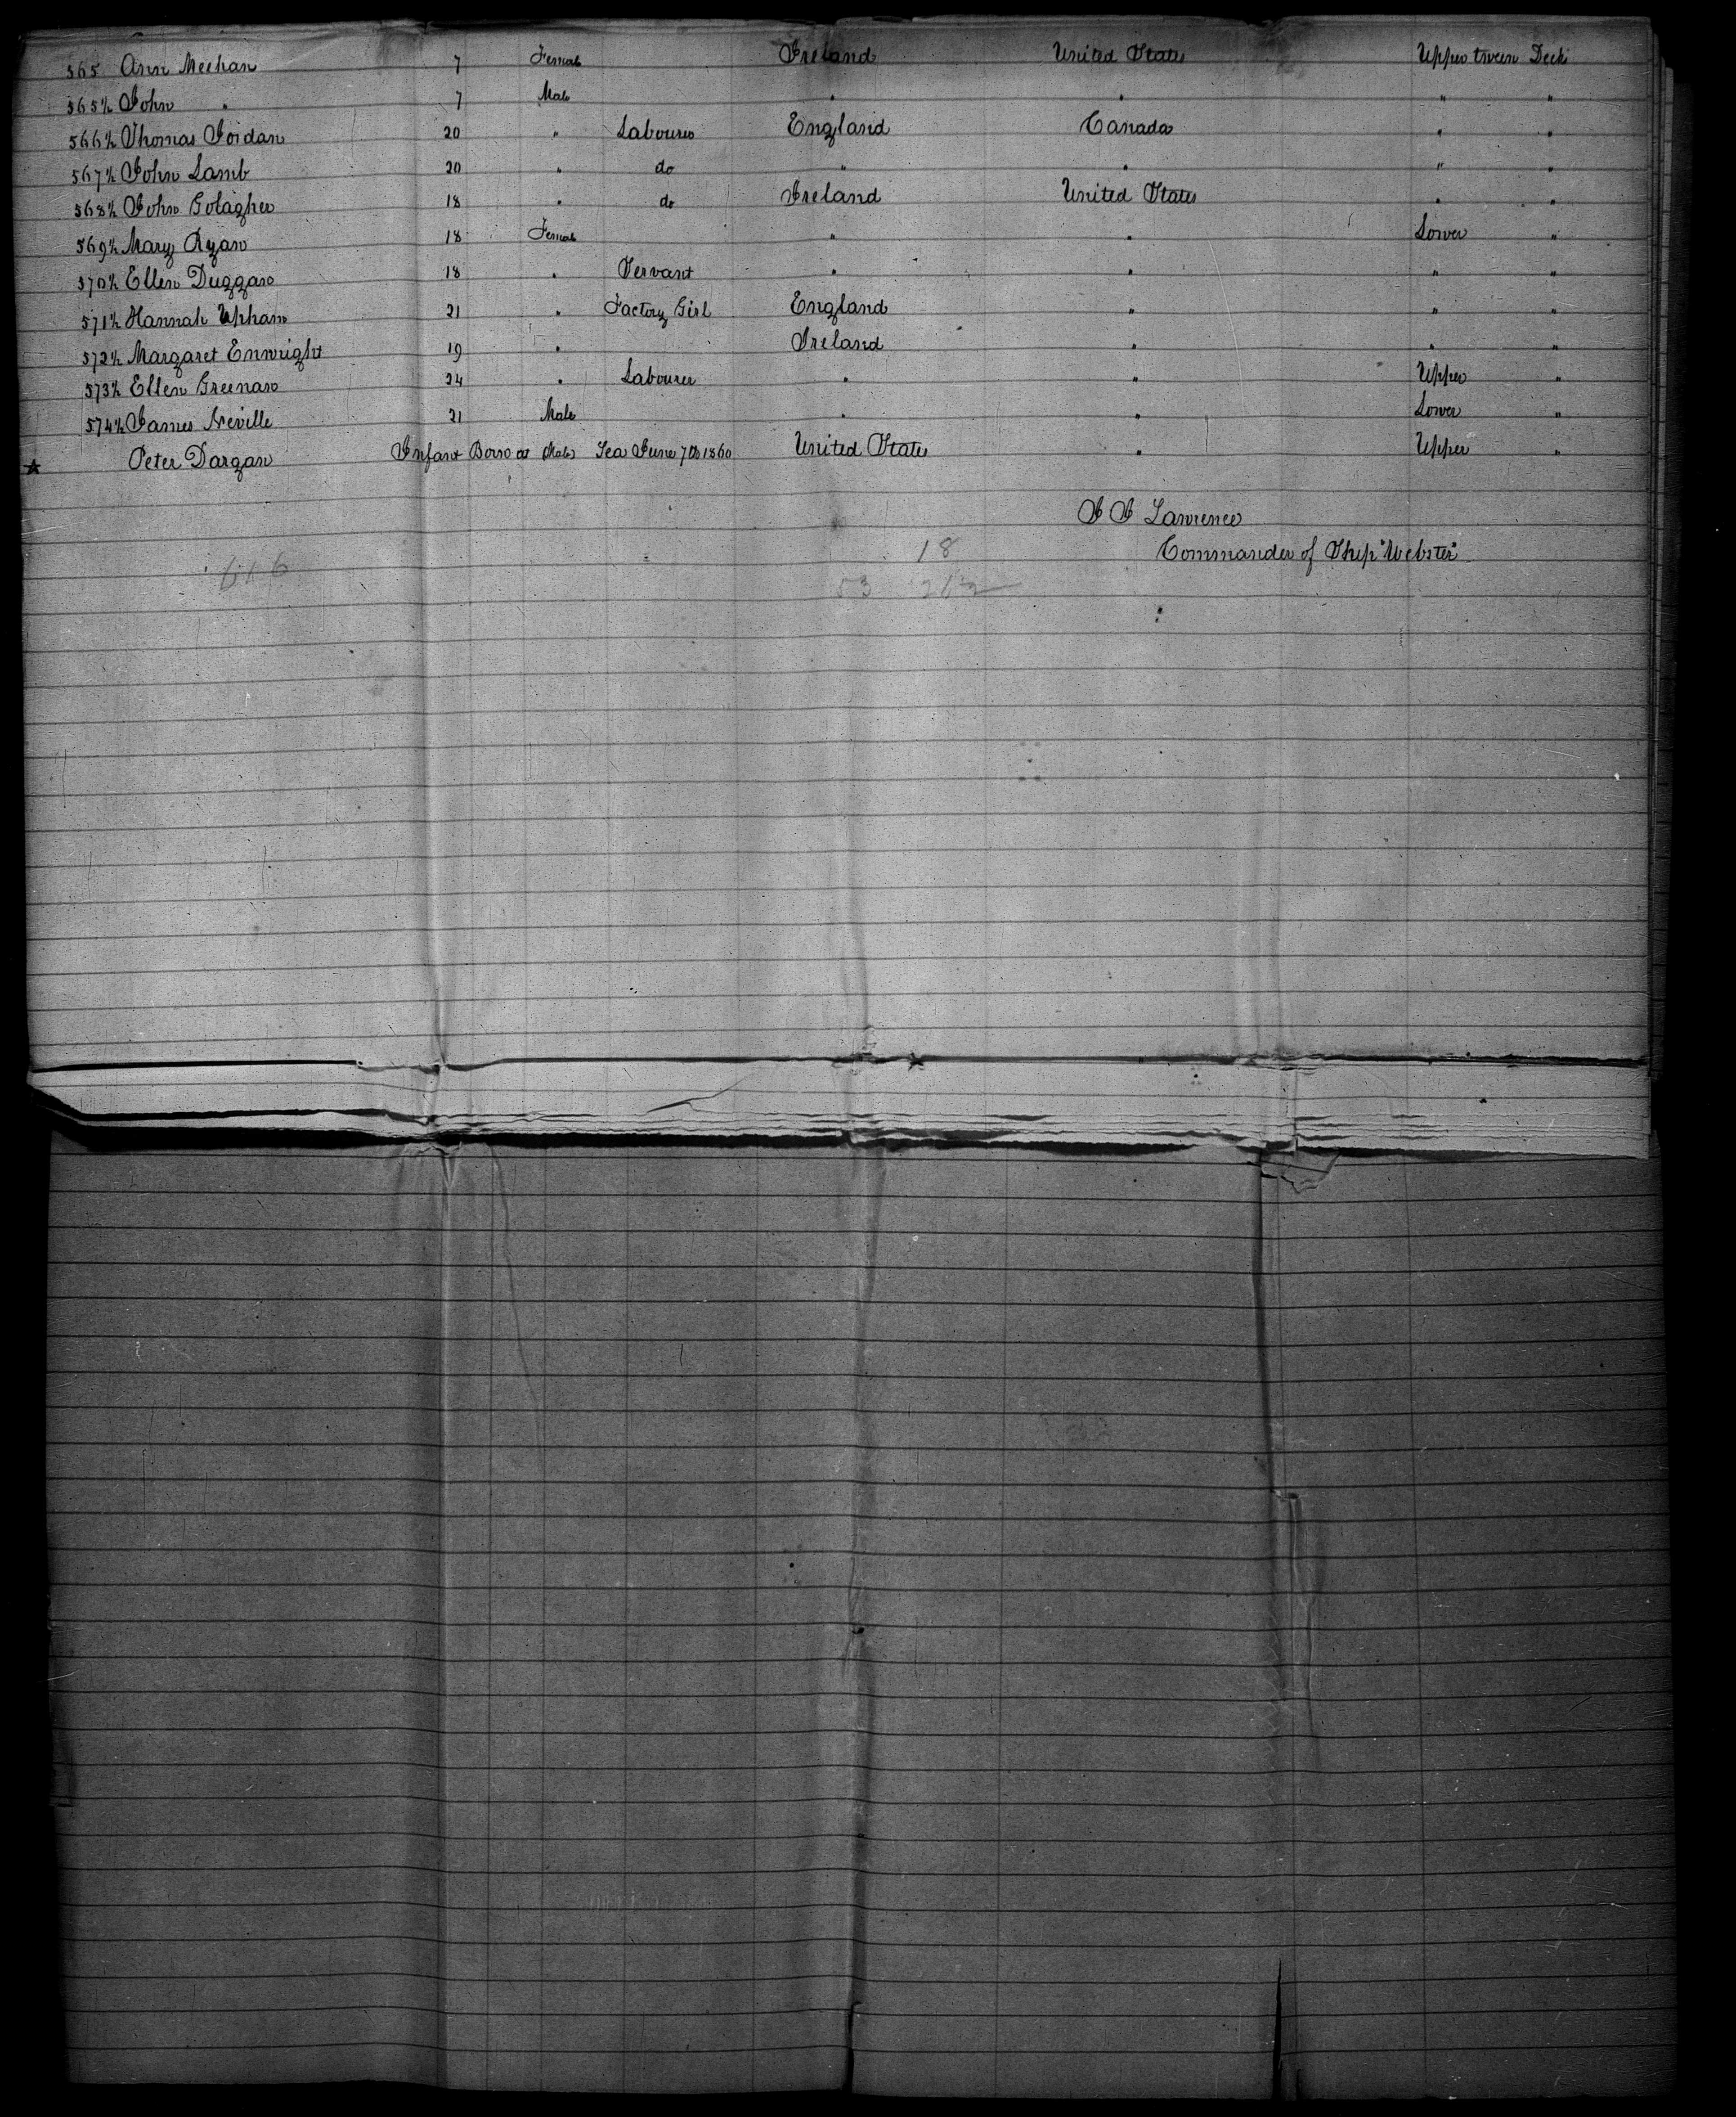 565 Ann Meehan 7 Female Ireland United States Upper tween Decks
565½ John " 7 Male " " " "
566½ Thomas Jordan 20 " Labourer England Canada " "
567½ John Lamb 20 " do " " " "
568½ John Golagher 18 " do Ireland United States " "
569½ Mary Ryan 18 Female " " Lower "
570½ Ellen Duggan 18 " Servant " " " "
571½ Hannah Upham 21 " Factory Girl England " " "
572½ Margaret Enwright 19 " Ireland " " "
573½ Ellen Greenan 24 " Labourer " " Upper "
574½ James Neville 21 Male " " Lower "
Peter Dargan Infant Born at (Male) Sea June 7th 1860 United States " Upper "
J J Lawrence
18 Commander of Ship "Webster"
53